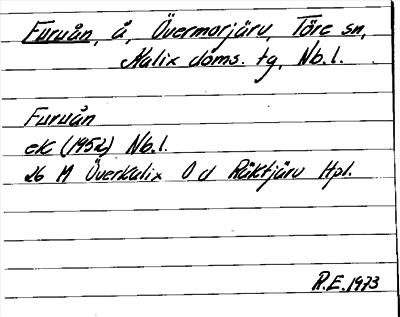 Furuån, å, Övermorjärv, Töre sn,
Kalix doms. tg, Nb.l.
Furuån
ek (1952) Nb.l.
26 M Överkalix O d Räktjärv Hpl.
R.E. 1973